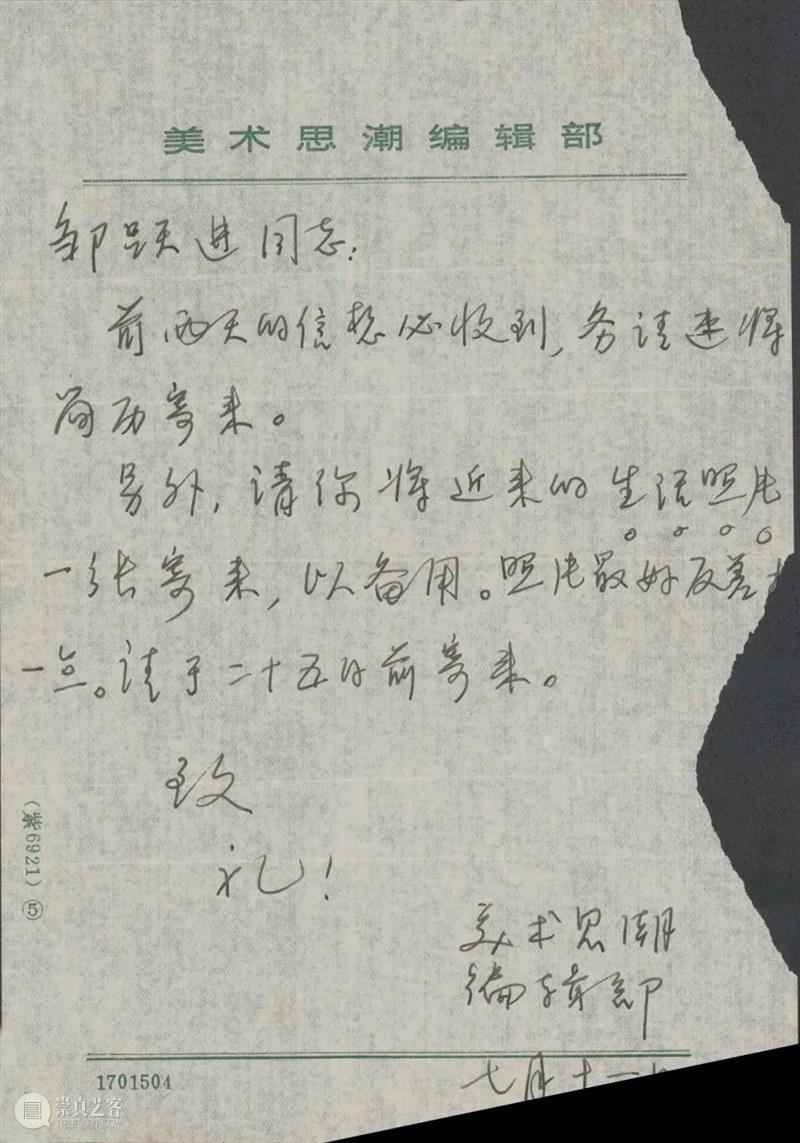 美术思潮编辑部
邹跃进同志：
前两天的信想必收到，务请速将
简历寄来。
另外，请你将近来的生活照片
一张寄来，以备用。照片最好反差
一点。请于二十五日前寄来。
致
礼！
美术思潮
编辑部
七月十一
(紫6921) ⑤
1701504
崇真艺客
TRUEART.COM